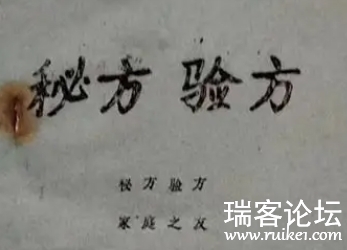 秘方 验方
秘方验方
家庭之友
瑞客论坛
www.ruike1.com